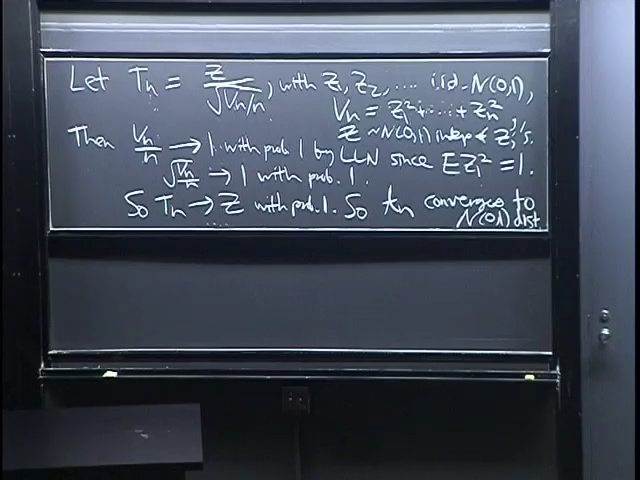 Let Tₙ = Z/√(Vₙ/n), with Z₁, Z₂, .... i.i.d. N(0,1),
Vₙ = Z₁²+...+Zₙ²,
Z ~ N(0,1) indep of Zⱼ's.
Then Vₙ/n → 1 with prob. 1 by LLN since EZ₁² = 1.
√(Vₙ/n) → 1 with prob. 1.
So Tₙ → Z with prob. 1. So tₙ converges to
N(0,1) dist.